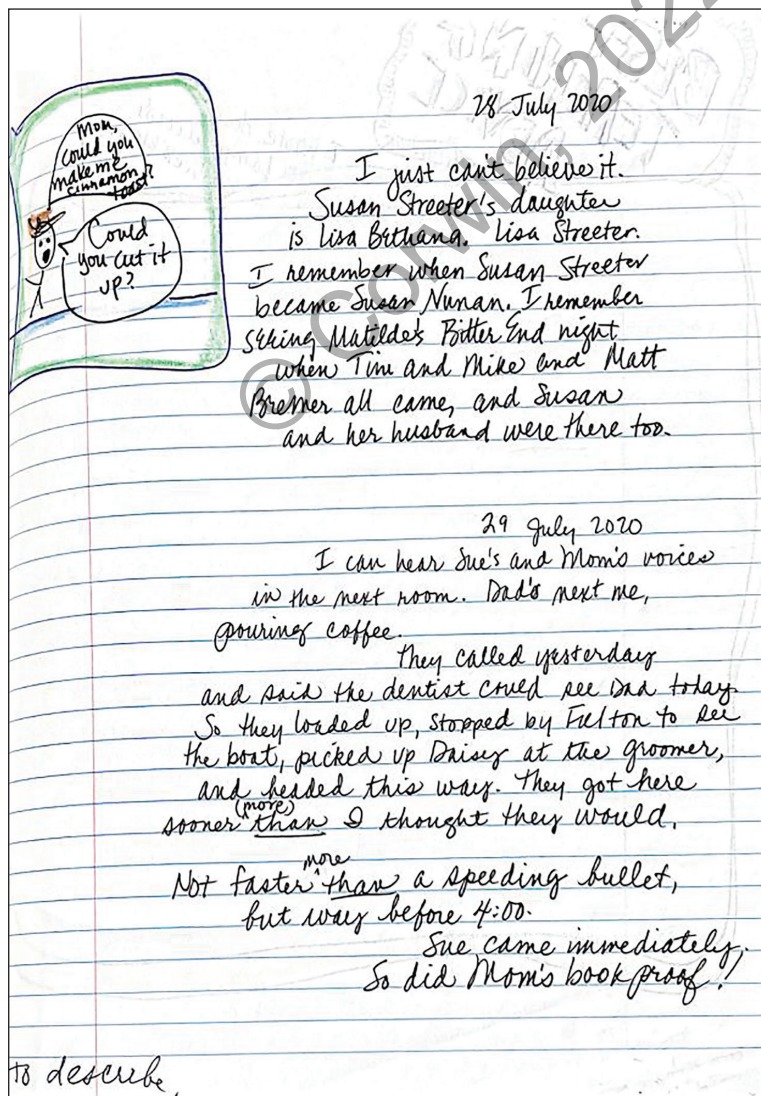 Mom,
could you
make me
cinnamon
toast?
Could
you cut it
up?
28 July 2020
I just can't believe it.
Susan Streeter's daughter
is Lisa Bethana. Lisa Streeter.
I remember when Susan Streeter
became Susan Nunan. I remember
seeing Matilde's Bitter End night
when Tim and Mike and Matt
Bremer all came, and Susan
and her husband were there too.
29 July 2020
I can hear Sue's and Mom's voices
in the next room. Dad's next me,
pouring coffee.
They called yesterday
and said the dentist could see Dad today.
So they loaded up, stopped by Fulton to see
the boat, picked up Daisy at the groomer,
and headed this way. They got here
(more)
sooner ^ than I thought they would.
more
Not faster ^ than a speeding bullet,
but way before 4:00.
Sue came immediately.
So did Mom's book proof!!
to describe
© Corwin, 202